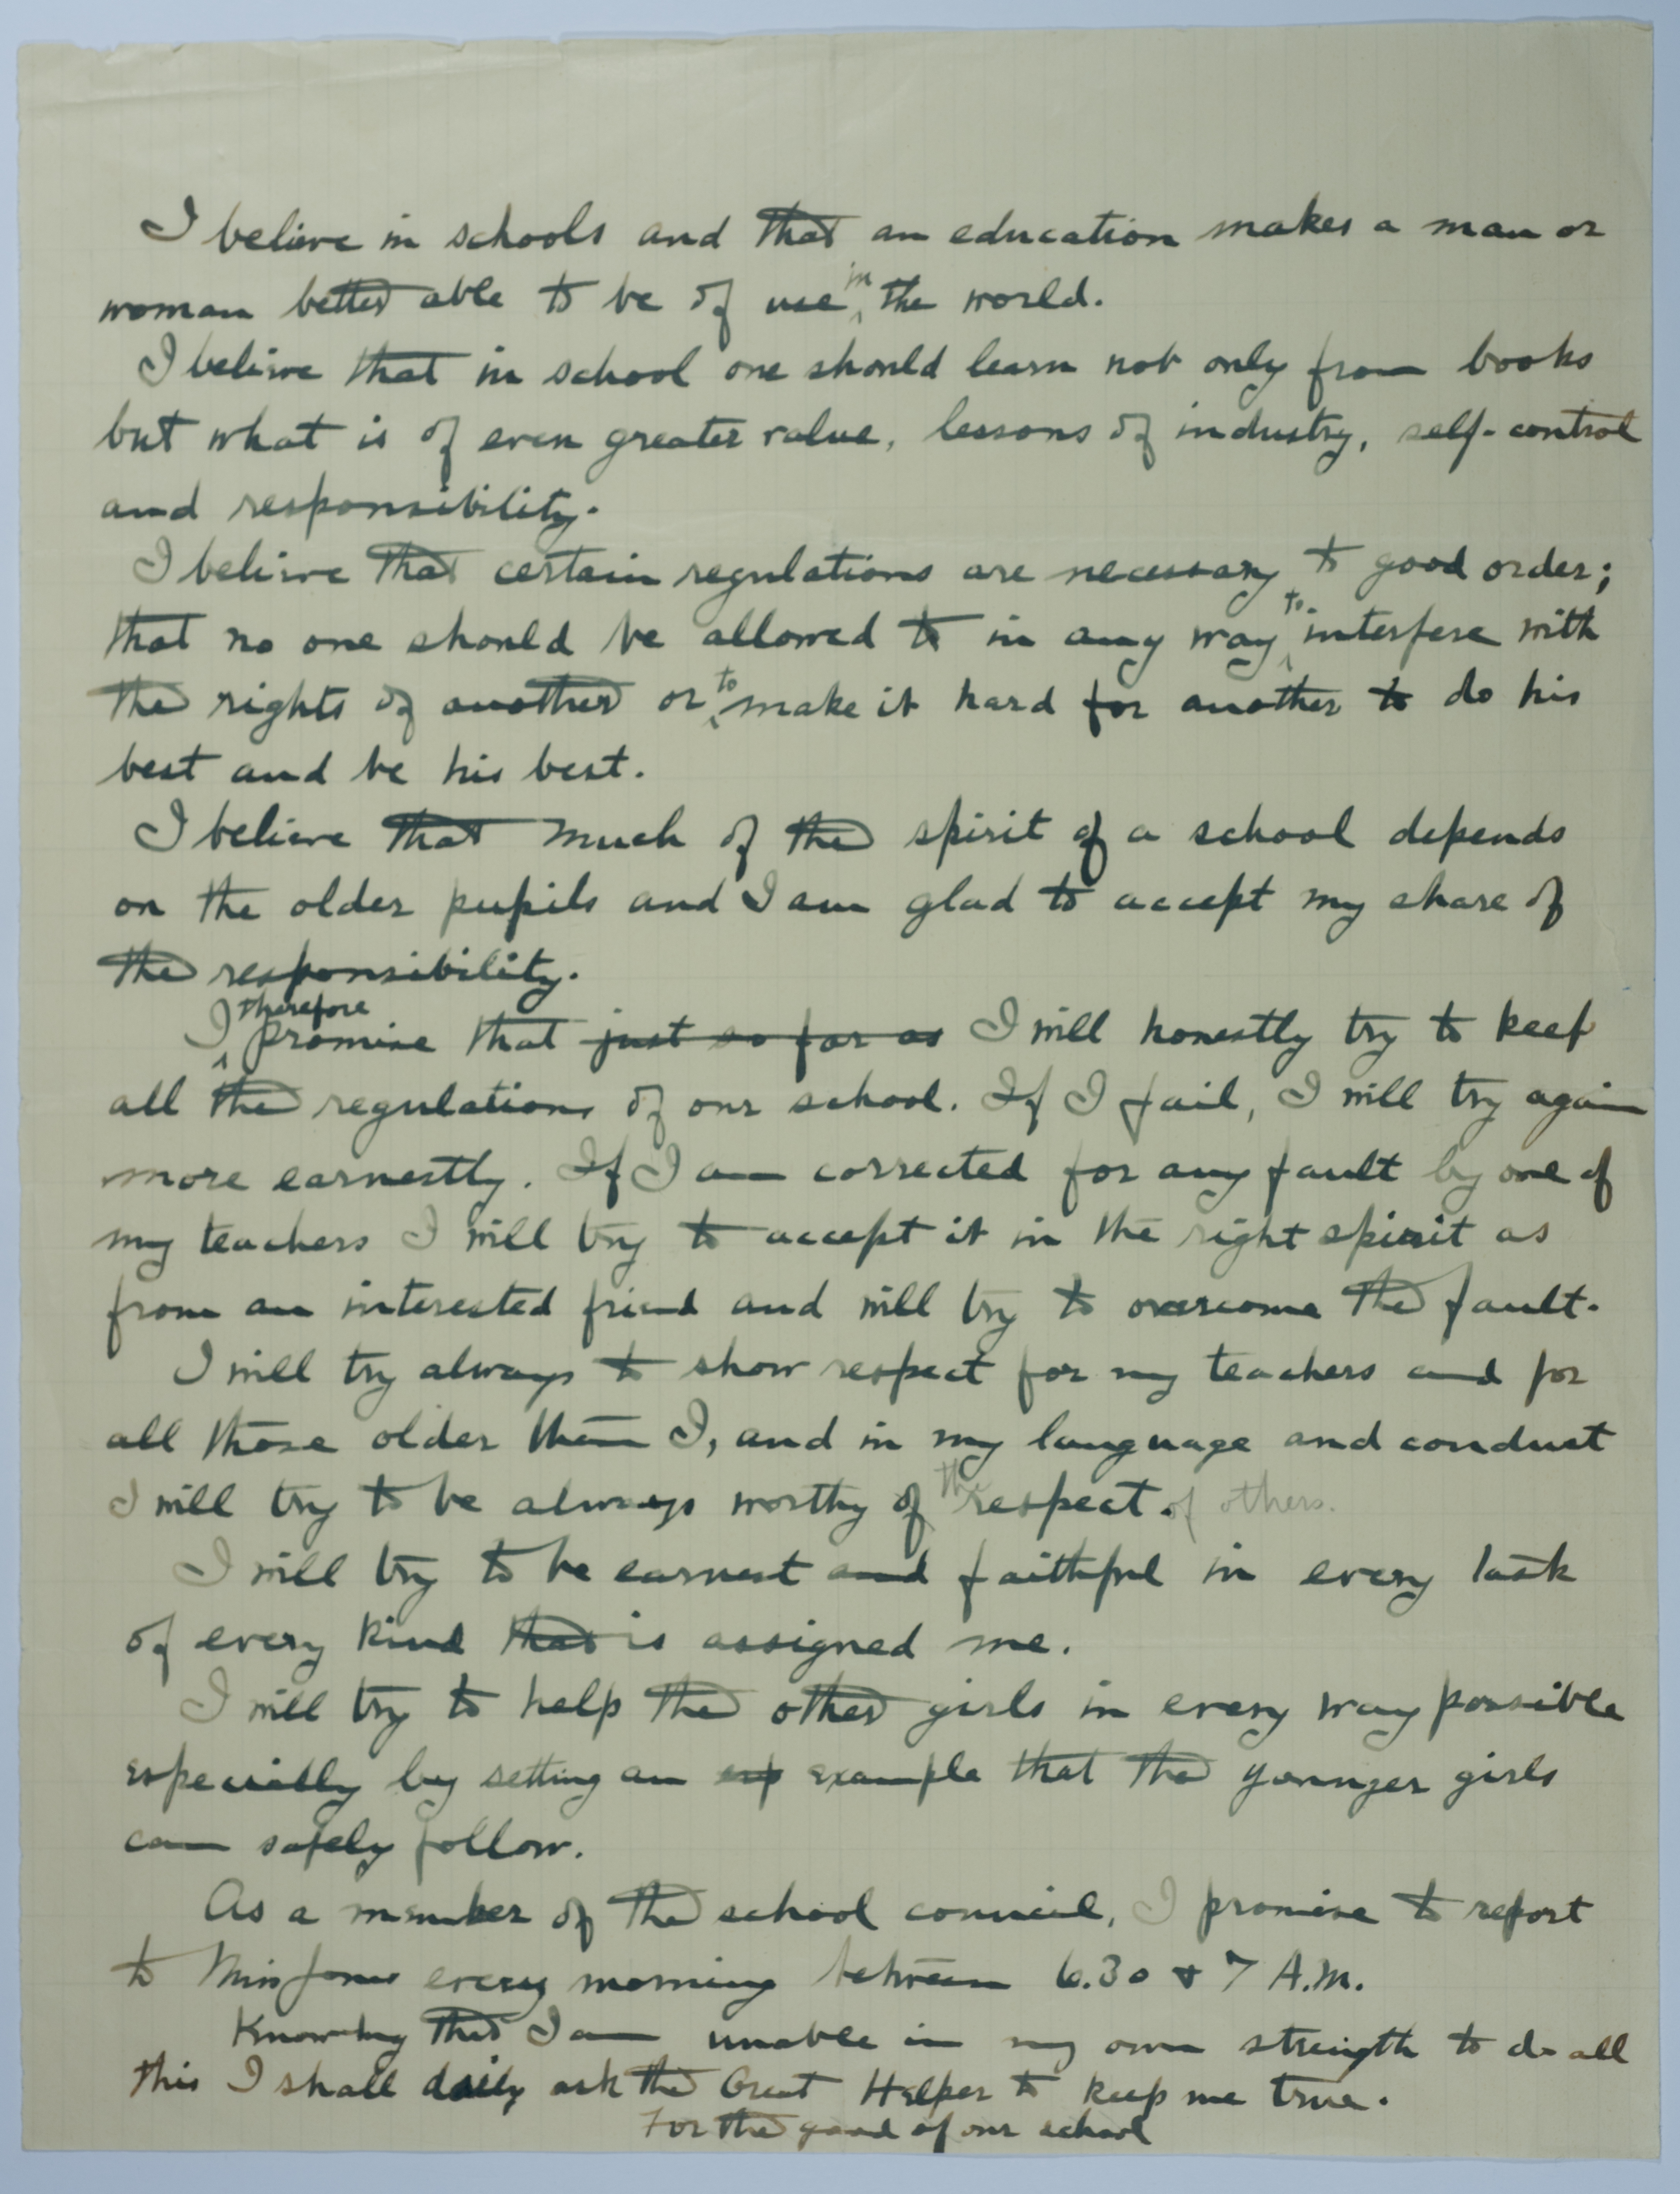 I believe in schools and that an education makes a man or
woman better able to be of use in the world.
I believe that in school one should learn not only from books
but what is of even greater value, lessons of industry, self-control
and responsibility.
I believe that certain regulations are necessary to good order;
that no one should be allowed to in any way to interfere with
the rights of another or to make it hard for another to do his
best and be his best.
I believe that much of the spirit of a school depends
on the older pupils and I am glad to accept my share of
the responsibility.
I therefore promise that just so far as I will honestly try to keep
all the regulations of our school. If I fail, I will try again
more earnestly. If I am corrected for any fault by one of
my teachers I will try to accept it in the right spirit as
from an interested friend and will try to overcome the fault.
I will try always to show respect for my teachers and for
all those older than I, and in my language and conduct
I will try to be always worthy of the respect. of others.
I will try to be earnest and faithful in every task
of every kind that is assigned me.
I will try to help the other girls in every way possible
especially by setting an exp example that the younger girls
can safely follow.
As a member of the school council, I promise to report
to Miss Jones every morning between 6.30 & 7 A.M.
Knowing that I am unable in my own strength to do all
this I shall daily ask the Great Helper to keep me true.
For the good of our school